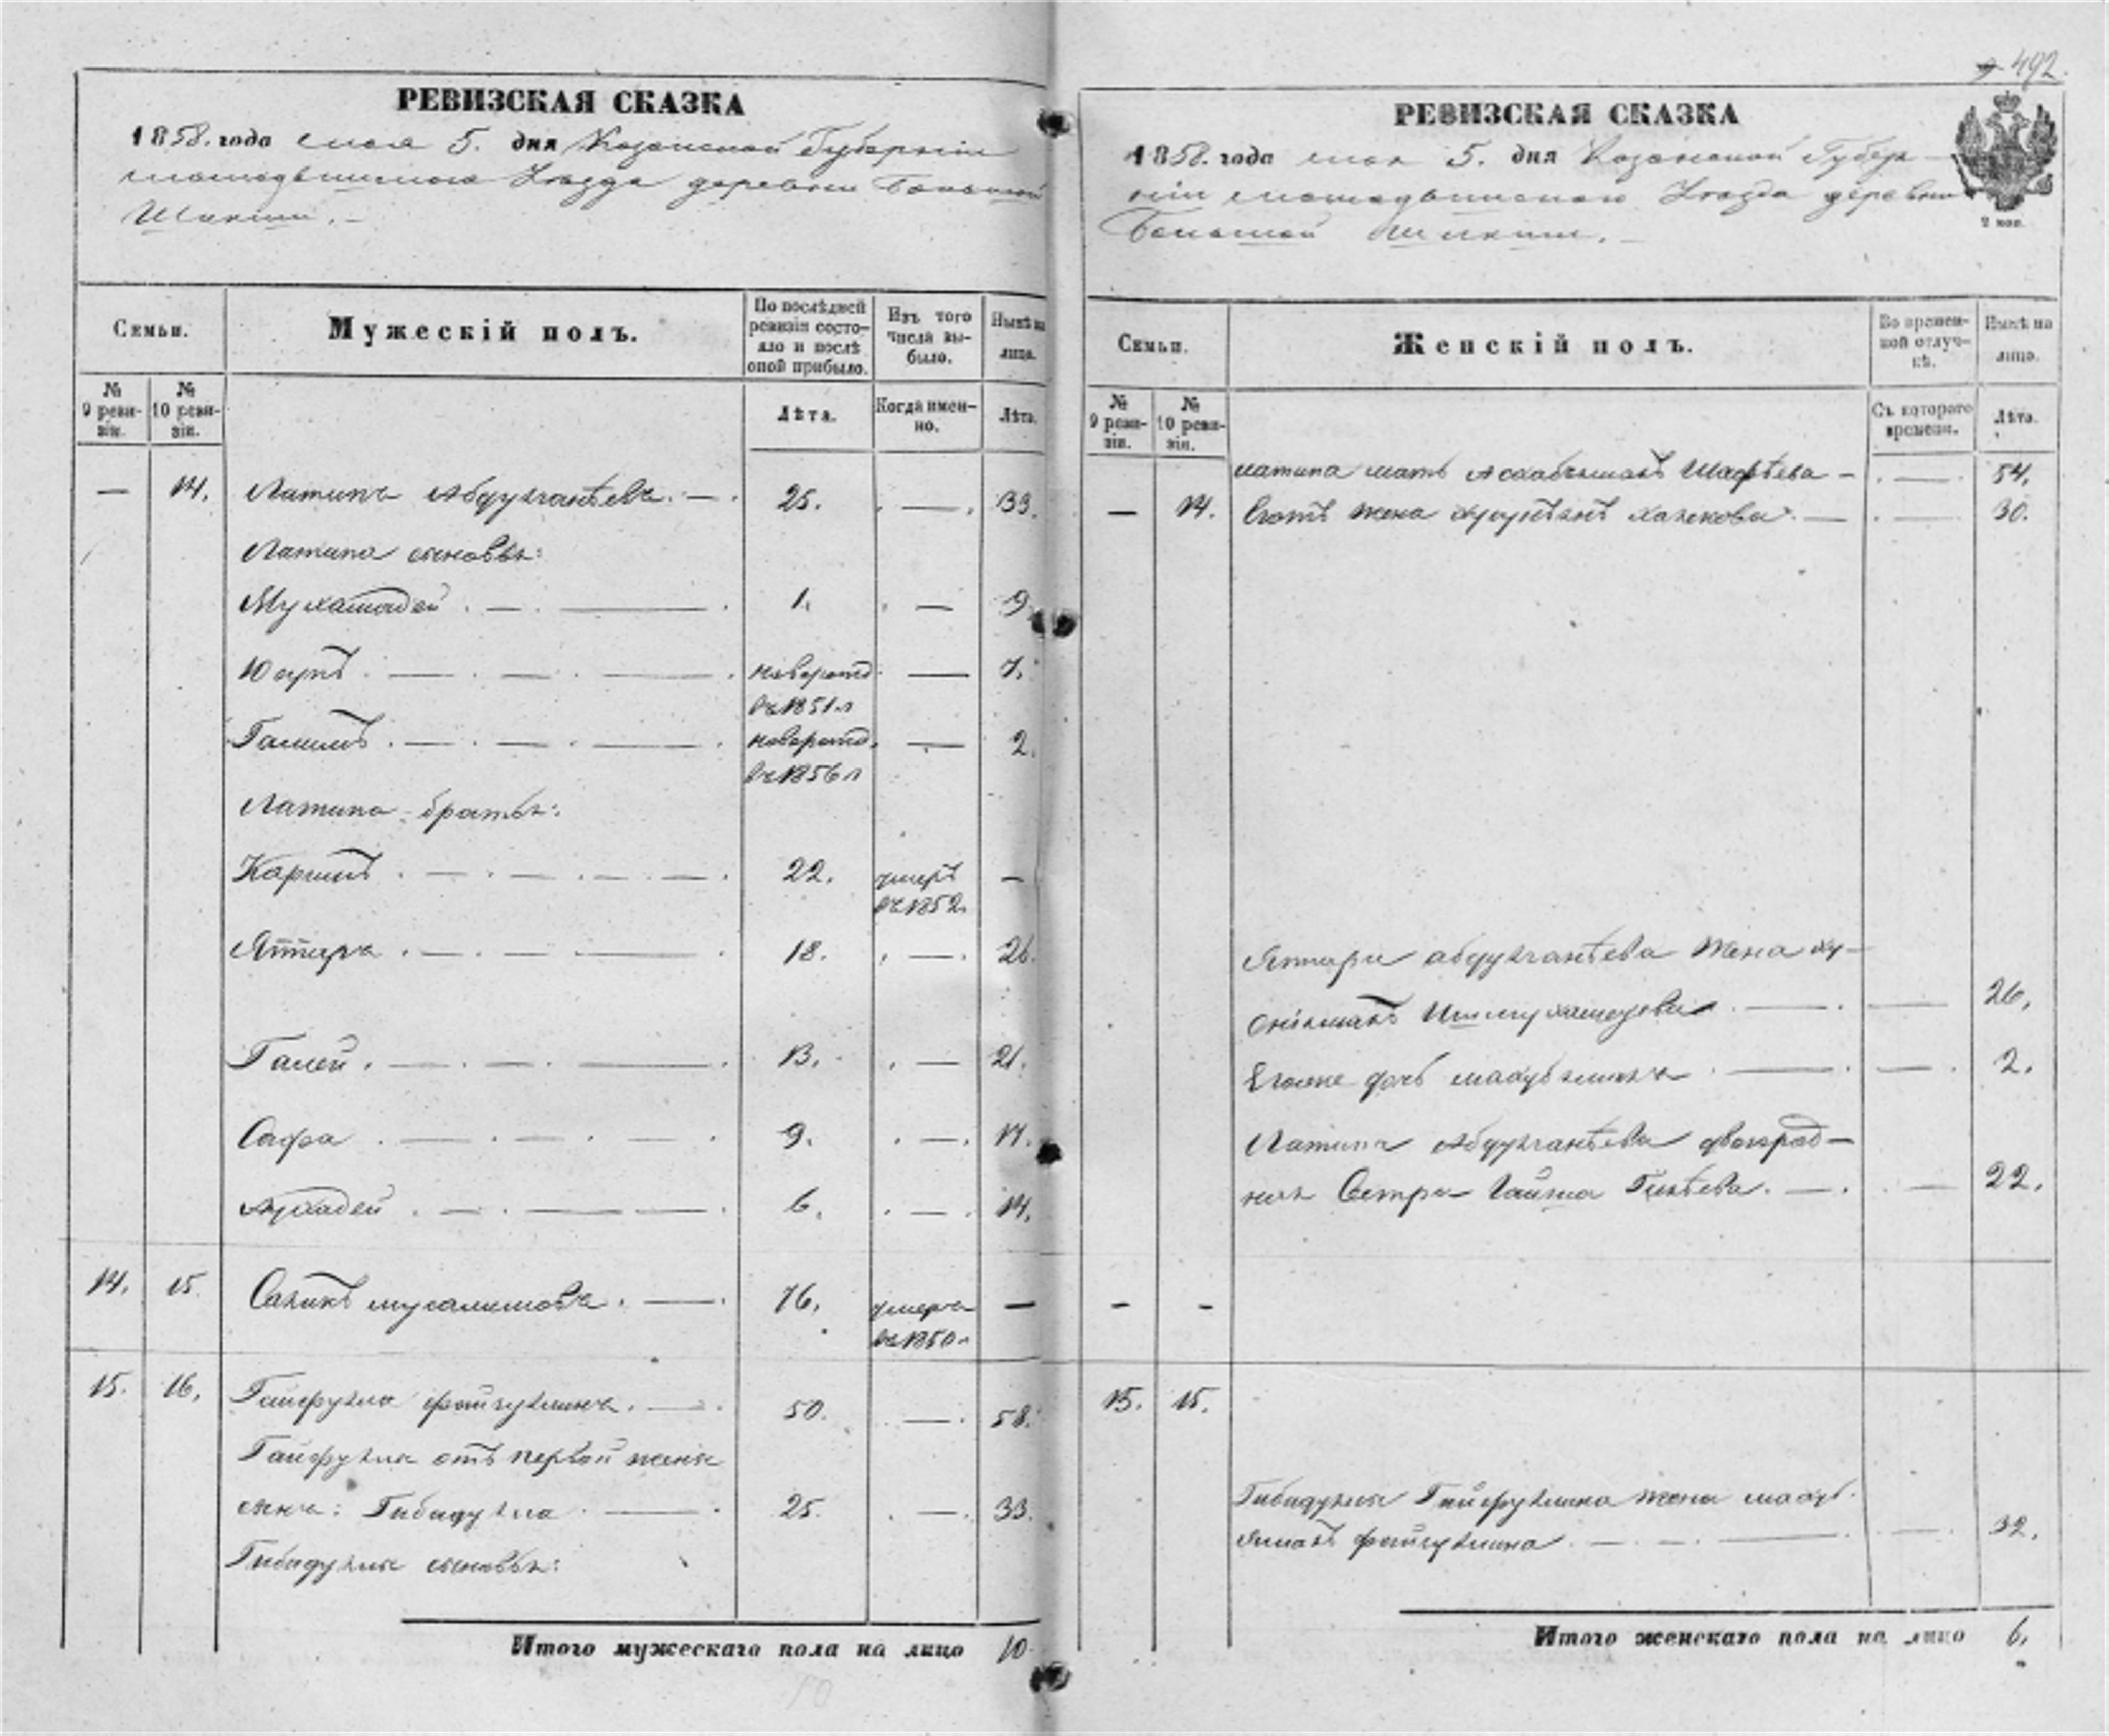 РЕВИЗСКАЯ СКАЗКА
1858. года мая 5. дня Казанской Губерніи
Уѣзда деревни Большой
Шинки.
Семьи.
Мужескій полъ.
По послѣдней ревизіи состояло и послѣ оной прибыло.
Изъ того числа выбыло.
Нынѣ на лицо.
№ 9 ревизіи.
№ 10 ревизіи.
Лѣта.
Когда именно.
Лѣта.
— 14. Латипъ Абдулганѣевъ. — 25. — 33.
Латипа сыновья:
Мухамадей. — 1. — 9.
Юсупъ — новорожд. въ 1851 г — 7.
Галимъ — новорожд. въ 1856 г — 2.
Латипа братья:
Каримъ — 22. умеръ въ 1852. —
Яттаръ — 18. — 26.
Галей. — 13. — 21.
Сафа — 9. — 17.
Ахмадей — 6. — 14.
14. 15. Салихъ — 76. умеръ въ 1850 г —
15. 16. Гайфулла Файзулинъ. — 50. — 58.
Гайфуллы отъ первой жены
сынъ: Гибадулла — 25. — 33.
Гибадуллы сыновья:
Итого мужескаго пола на лицо 10.
492.
РЕВИЗСКАЯ СКАЗКА
1858. года мая 5. дня Казанской Губер-
ніи Уѣзда деревни
Большой Шинки.
2 коп.
Семьи.
Женскій полъ.
Во временной отлучкѣ.
Нынѣ на лицо.
№ 9 ревизіи.
№ 10 ревизіи.
Съ котораго времени.
Лѣта.
Латипа мать Шафѣева — — 54.
— 14. Его жена Халекова — — 30.
Яттара Абдулганѣева жена
Ишмухаметева — — 26.
Его же дочь — — 2.
Латипа Абдулганѣева двоюрод-
ная сестра Гайша — — 22.
- -
15. 15.
Гибадуллы Гайфуллина жена
Файзулина — — 32.
Итого женскаго пола на лицо 6.